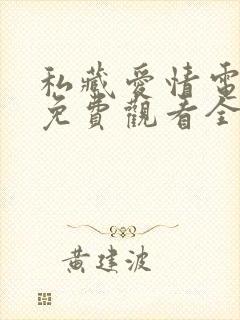 私藏愛情電
免費觀看全
黃建波